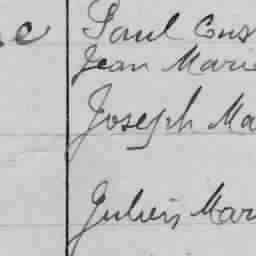 Paul Cons
Jean Marie
Joseph Ma
Julien Mar